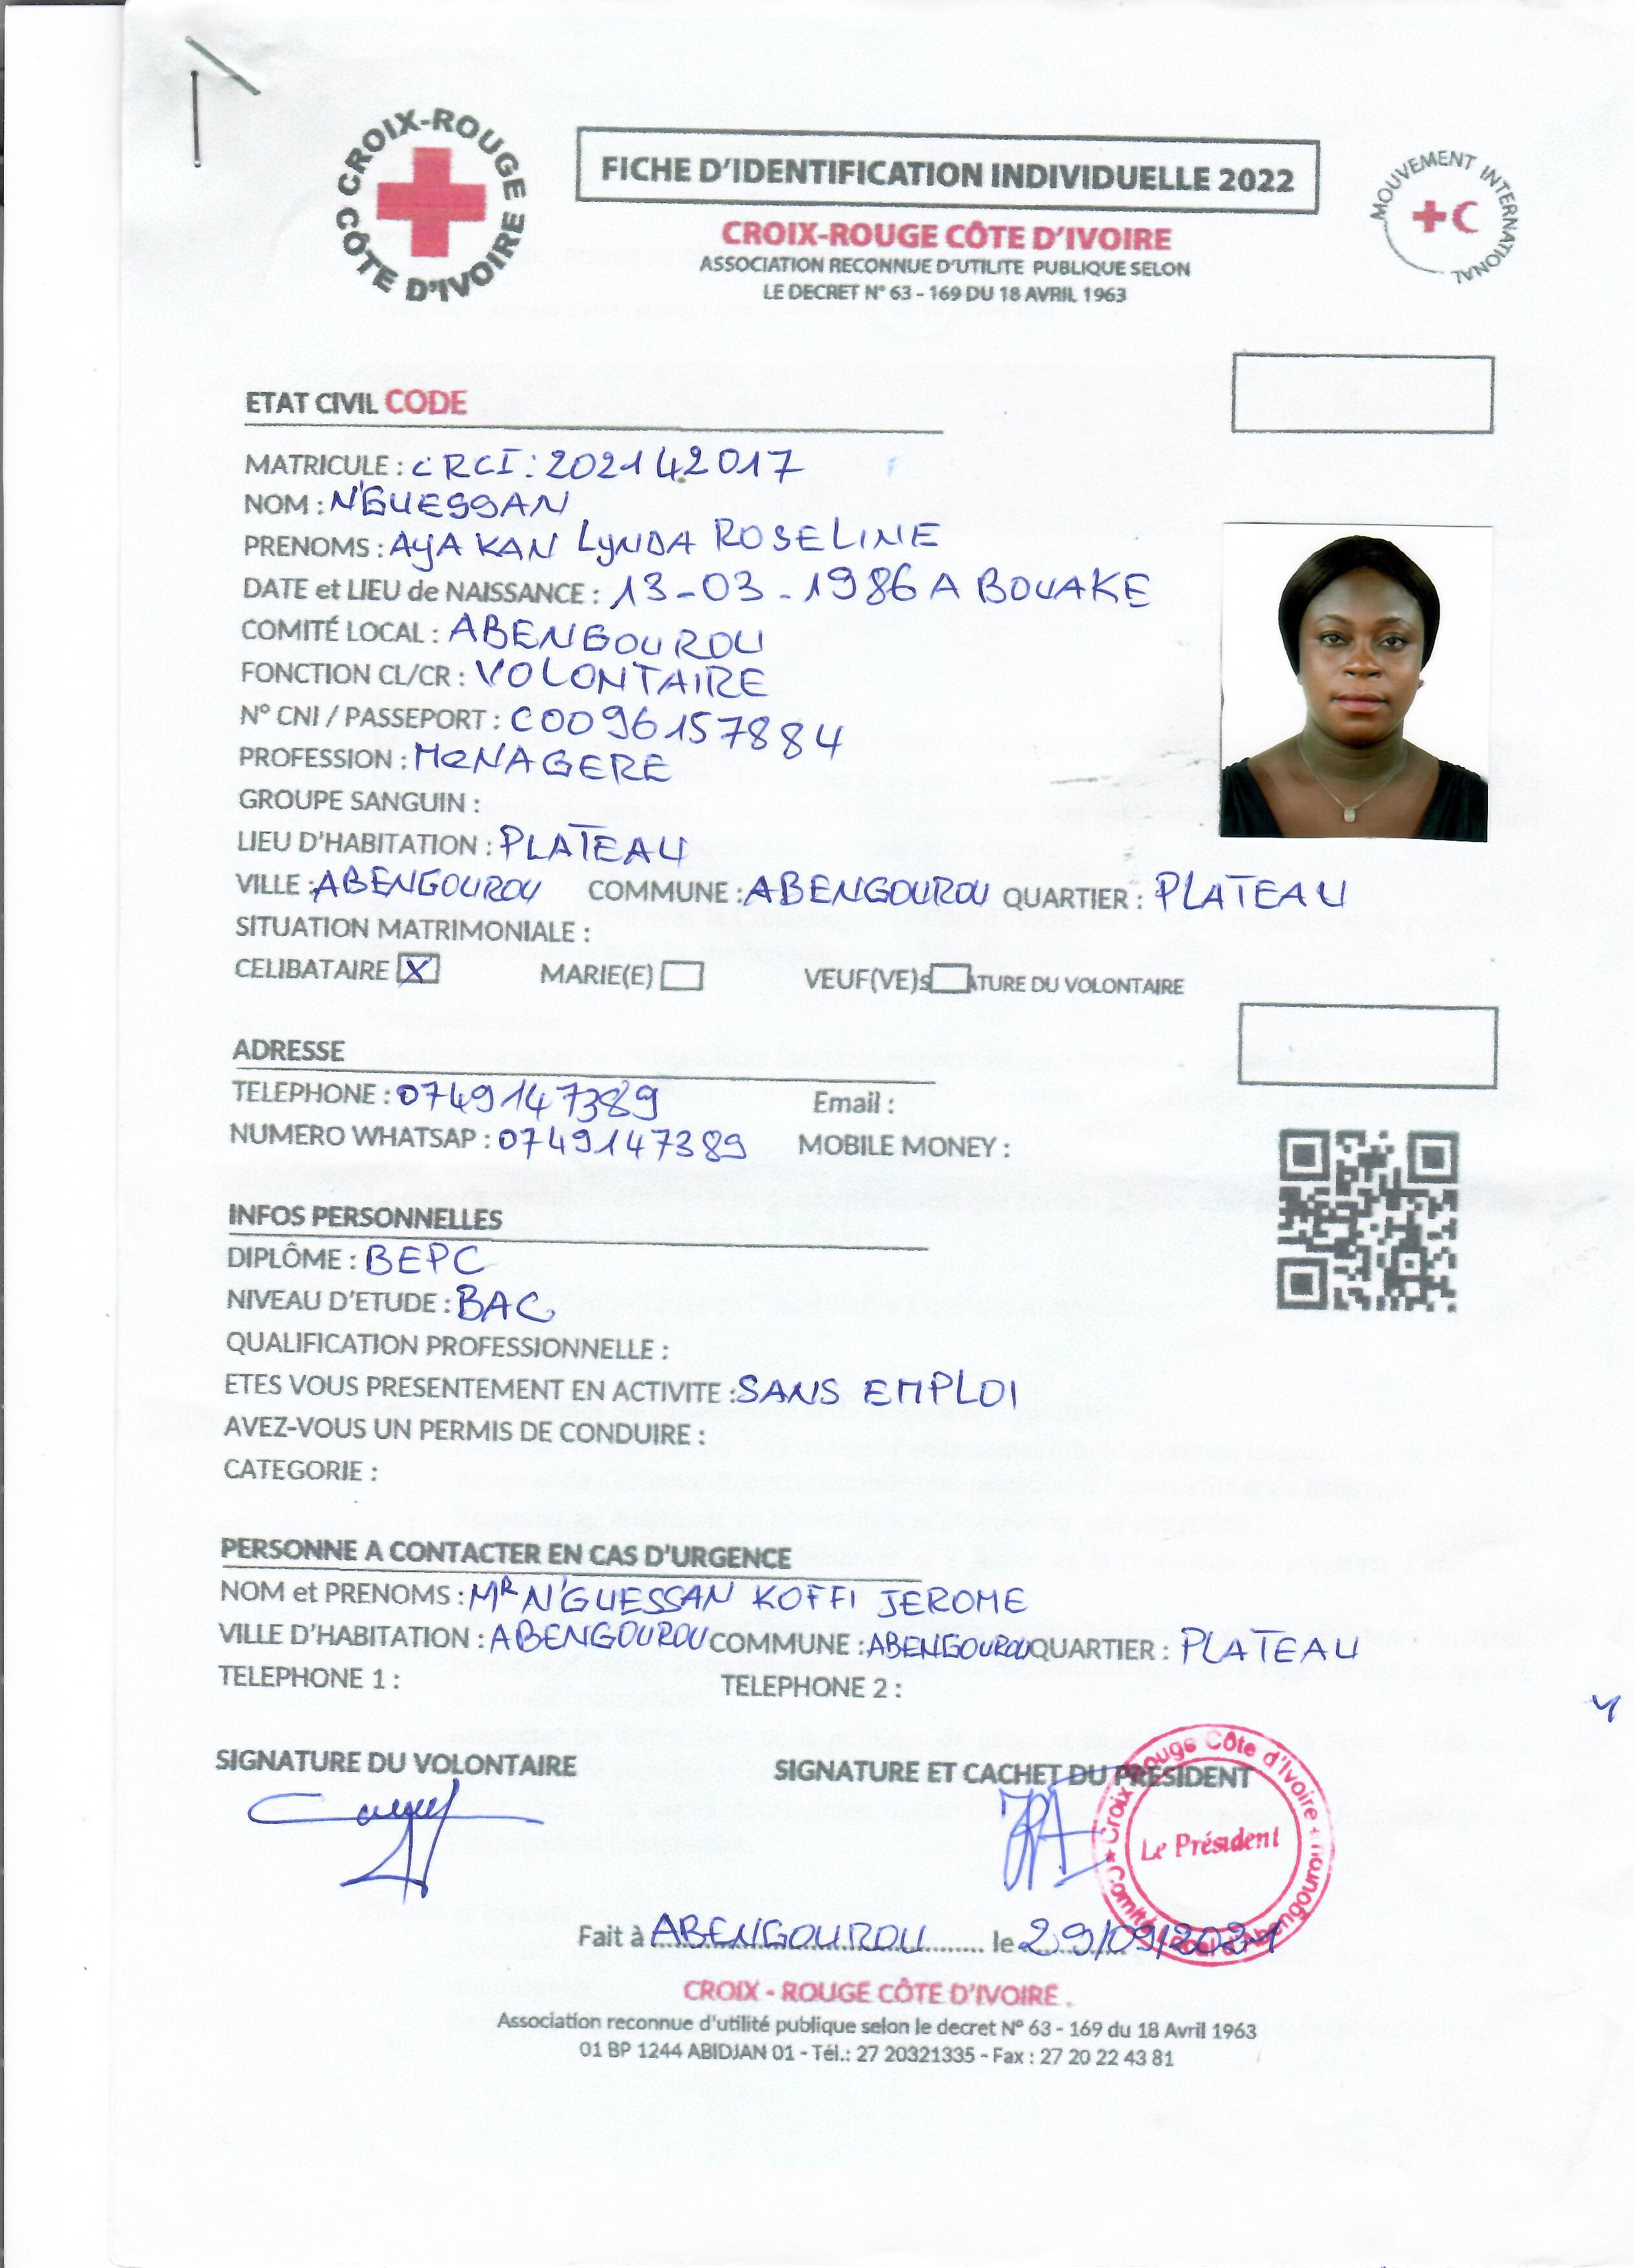 CROIX-ROUGE CÔTE D'IVOIRE
FICHE D'IDENTIFICATION INDIVIDUELLE 2022
MOUVEMENT INTERNATIONAL
CROIX-ROUGE CÔTE D'IVOIRE
ASSOCIATION RECONNUE D'UTILITE PUBLIQUE SELON
LE DECRET N° 63 - 169 DU 18 AVRIL 1963
ETAT CIVIL CODE
MATRICULE : CRCI: 202142017
NOM : N'GUESSAN
PRENOMS : AYA KAN LYNDA ROSELINE
DATE et LIEU de NAISSANCE : 13-03-1986 A BOUAKE
COMITÉ LOCAL : ABENGOUROU
FONCTION CL/CR : VOLONTAIRE
N° CNI / PASSEPORT : C0096157884
PROFESSION : MeNAGERE
GROUPE SANGUIN :
LIEU D'HABITATION : PLATEAU
VILLE : ABENGOUROU COMMUNE : ABENGOUROU QUARTIER : PLATEAU
SITUATION MATRIMONIALE :
CELIBATAIRE X MARIE(E) VEUF(VE)S ATURE DU VOLONTAIRE
ADRESSE
TELEPHONE : 0749147389 Email :
NUMERO WHATSAP : 0749147389 MOBILE MONEY :
INFOS PERSONNELLES
DIPLÔME : BEPC
NIVEAU D'ETUDE : BAC
QUALIFICATION PROFESSIONNELLE :
ETES VOUS PRESENTEMENT EN ACTIVITE : SANS EMPLOI
AVEZ-VOUS UN PERMIS DE CONDUIRE :
CATEGORIE :
PERSONNE A CONTACTER EN CAS D'URGENCE
NOM et PRENOMS : MR N'GUESSAN KOFFI JEROME
VILLE D'HABITATION : ABENGOUROU COMMUNE : ABENGOUROU QUARTIER : PLATEAU
TELEPHONE 1 : TELEPHONE 2 :
SIGNATURE DU VOLONTAIRE SIGNATURE ET CACHET DU PRESIDENT
Croix Rouge Côte d'Ivoire
Le Président
Comité Local d'Abengourou
Fait à ABENGOUROU le 29/09/2021
CROIX - ROUGE CÔTE D'IVOIRE .
Association reconnue d'utilité publique selon le decret N° 63 - 169 du 18 Avril 1963
01 BP 1244 ABIDJAN 01 - Tél.: 27 20321335 - Fax : 27 20 22 43 81